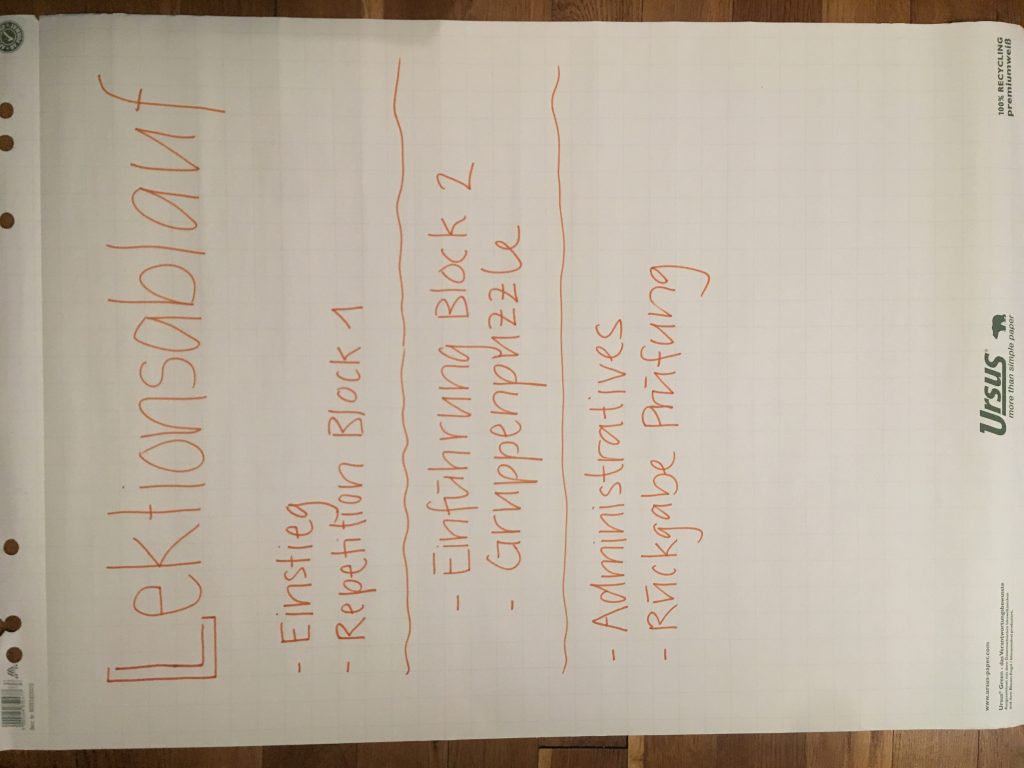 Lektionsablauf
- Einstieg
- Repetition Block 1
- Einführung Block 2
- Gruppenphzzle
- Administratives
- Rückgabe Prüfung
100% RECYCLING
premiumweiß
Ursus®
more than simple paper
www.ursus-paper.com